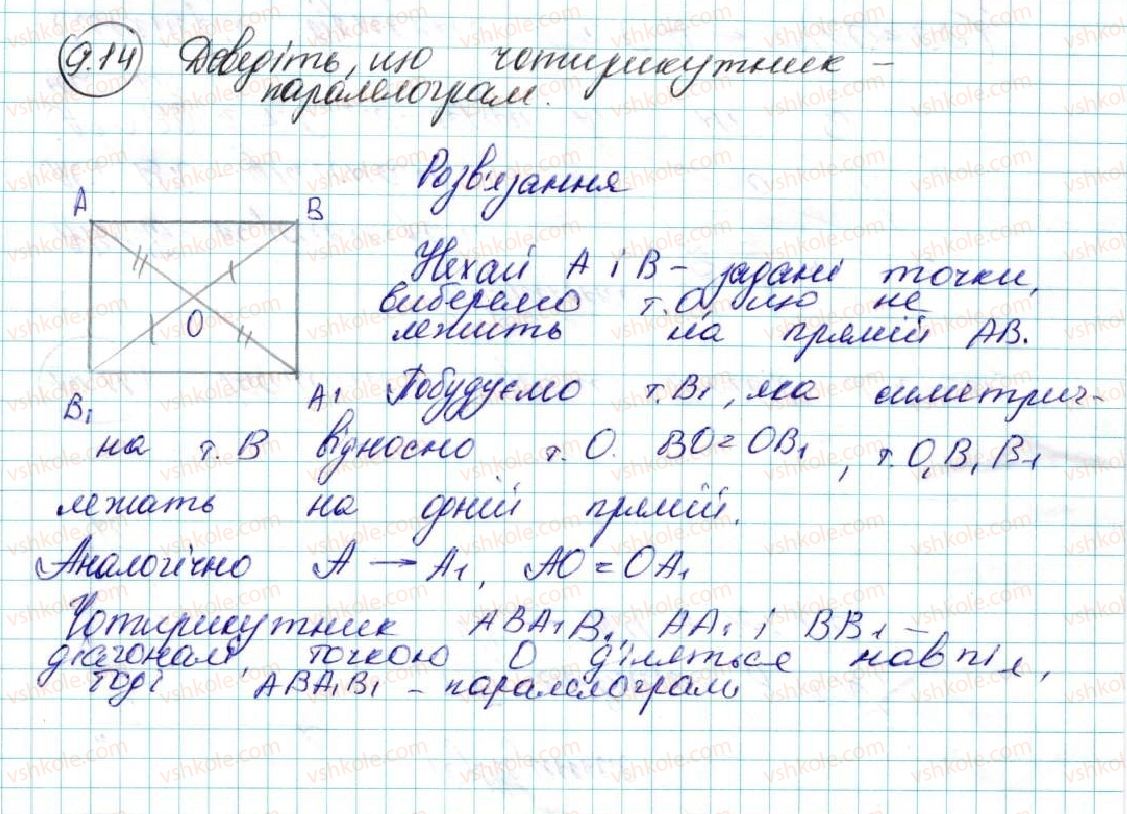 9.14 Доведіть, що чотирикутник –
паралелограм.
Розв'язання
A B
O
B₁ A₁
Нехай A і B – задані точки,
виберемо т. O що не
лежить на прямій AB.
Побудуємо т. B₁, яка симетрич-
на т. B відносно т. O. BO = OB₁, т. O, B, B₁
лежать на одній прямій.
Аналогічно A → A₁, AO = OA₁
Чотирикутник ABA₁B₁, AA₁ і BB₁ –
діагоналі, точкою O діляться навпіл,
тоді ABA₁B₁ – паралелограм
vshkole.com